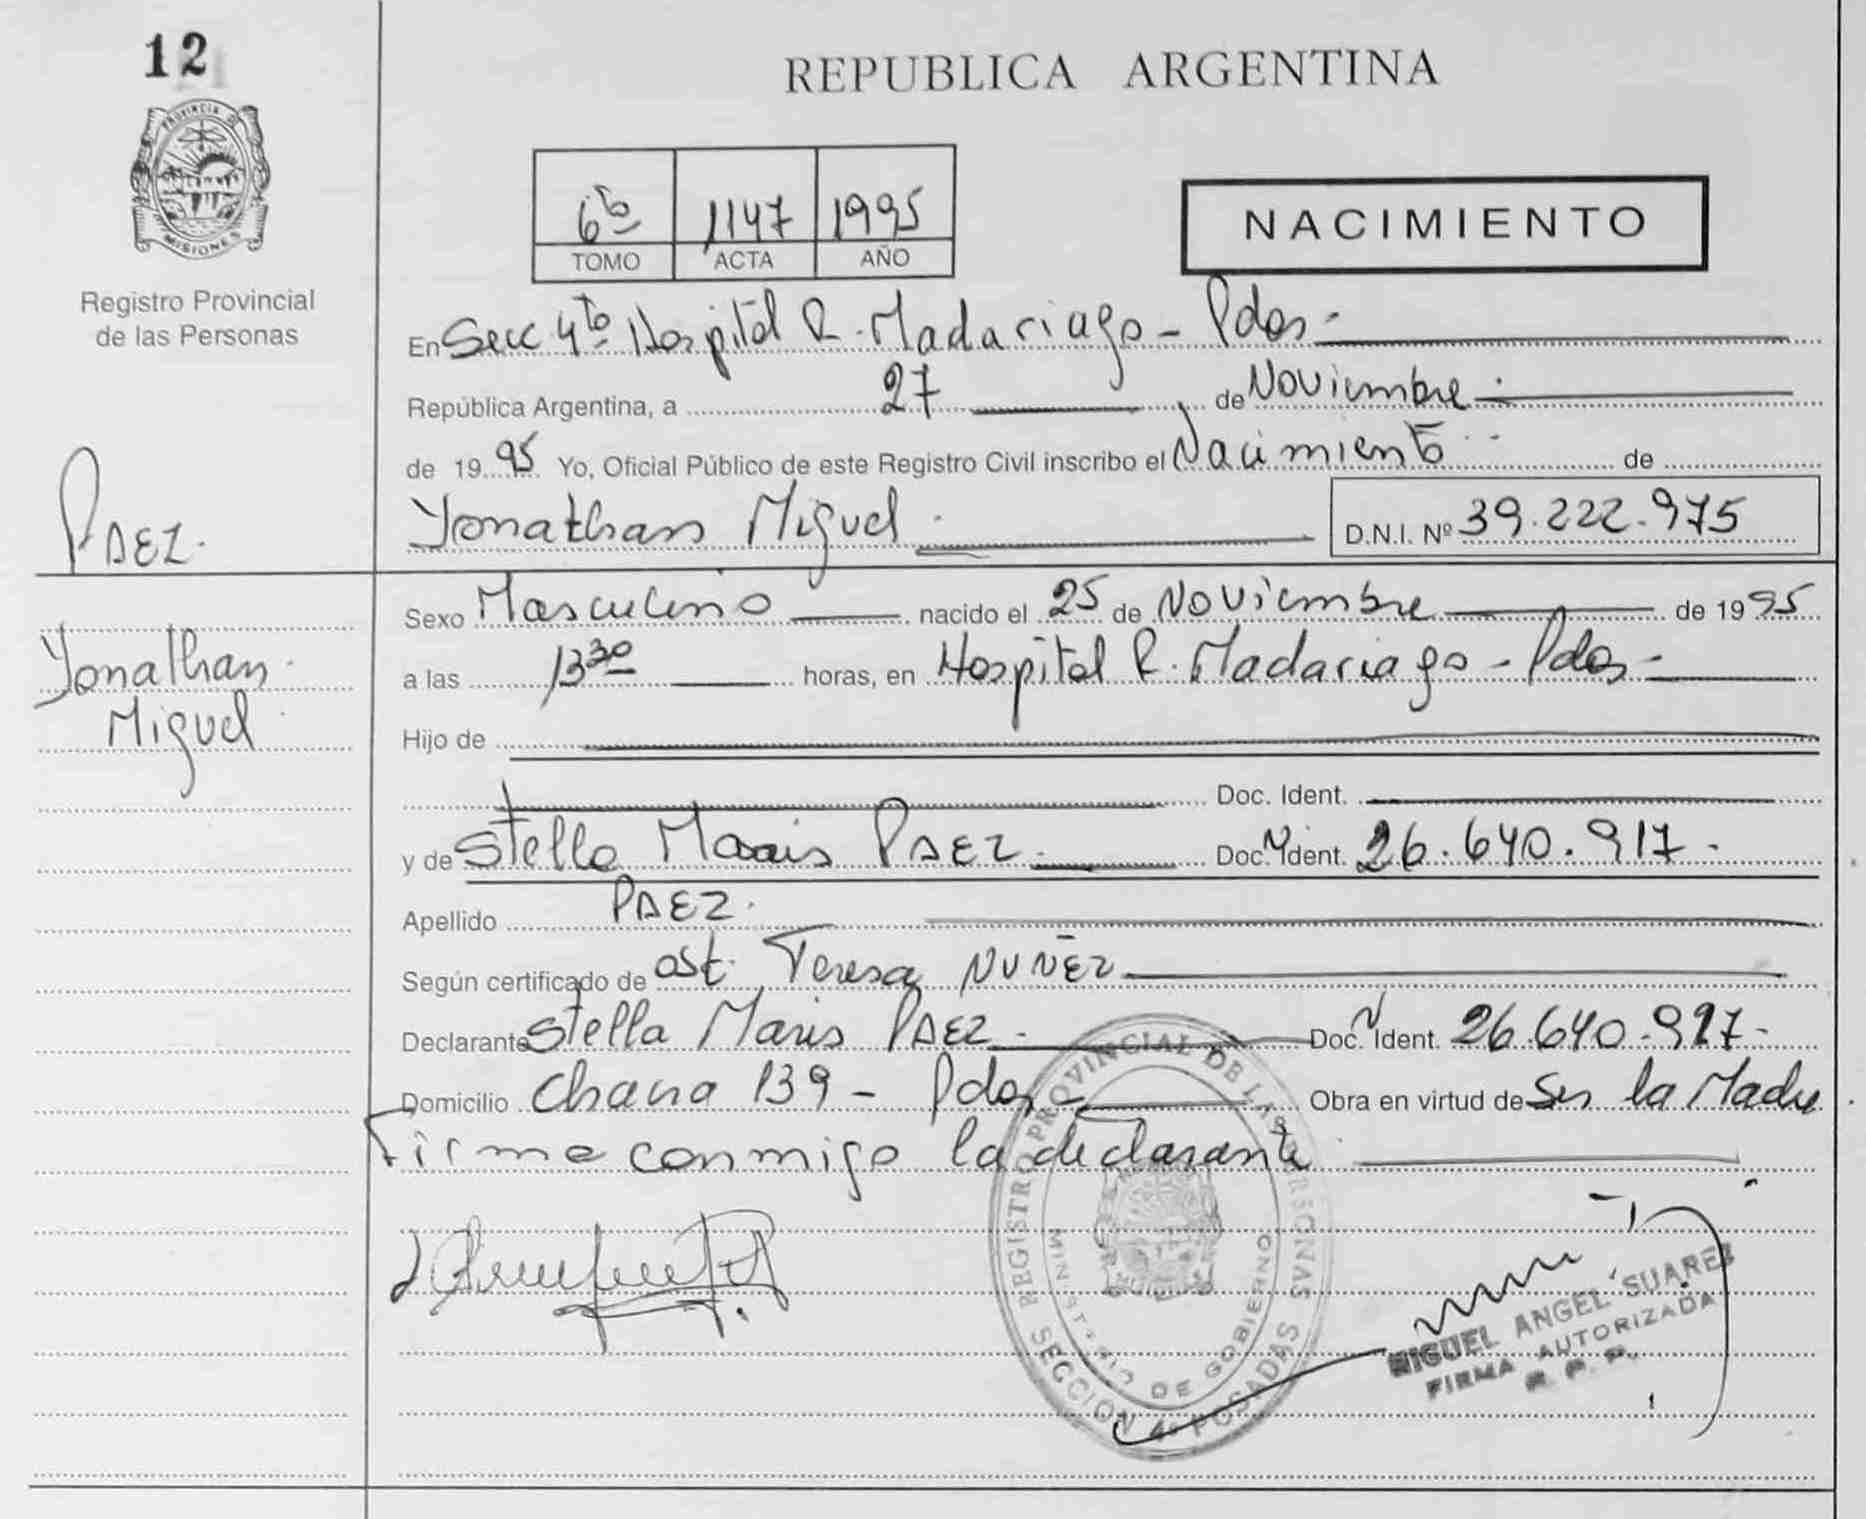 12
PROVINCIA DE
MISIONES
Registro Provincial
de las Personas
PAEZ.
Yonathan
Miguel
REPUBLICA ARGENTINA
6to 1147 1995
TOMO ACTA AÑO
NACIMIENTO
En Secc 4to Hospital R. Madariaga - Pdas -
República Argentina, a 27 de Noviembre
de 1995 Yo, Oficial Público de este Registro Civil inscribo el Nacimiento de
Yonathan Miguel D.N.I. Nº 39.222.975
Sexo Masculino nacido el 25 de Noviembre de 1995
a las 13 30 horas, en Hospital R. Madariaga - Pdas -
Hijo de
Doc. Ident.
y de Stella Maris PAEZ Doc. Ident. 26.640.917.
Apellido PAEZ.
Según certificado de ost. Teresa NUÑEZ
Declarante Stella Maris PAEZ - Doc. Ident. 26.640.917-
Domicilio Chacra 139 - Pdas - Obra en virtud de Ser la Madre
Firma conmigo la declarante
REGISTRO PROVINCIAL DE LAS PERSONAS
MINISTERIO DE GOBIERNO
SECCION 4º POSADAS
MIGUEL ANGEL SUAREZ
FIRMA AUTORIZADA
R. P. P.